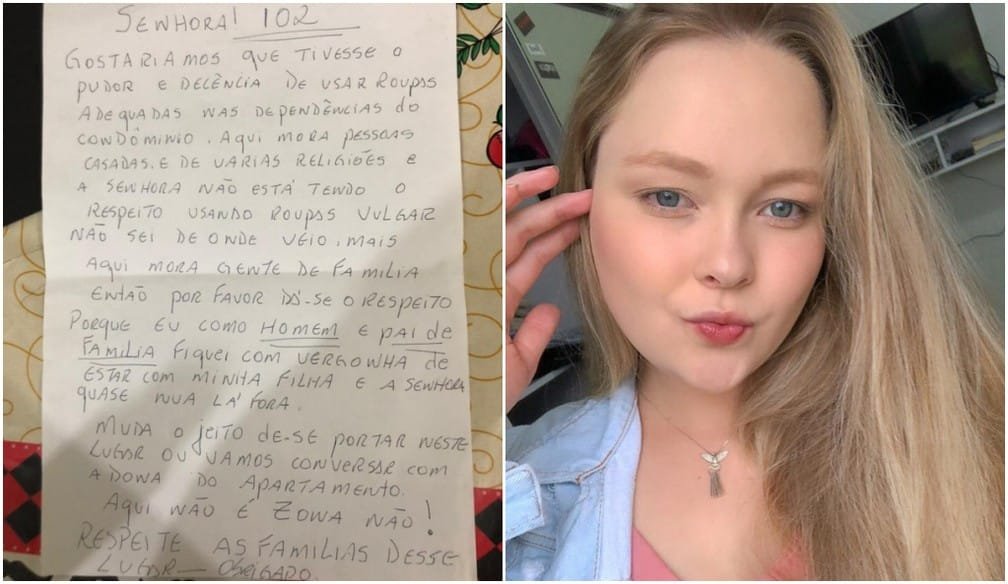 SENHORA! 102
GOSTARIAMOS QUE TIVESSE O
PUDOR E DECÊNCIA DE USAR ROUPAS
ADEQUADAS NAS DEPENDÊNCIAS do
CONDÔMINIO. AQUI MORA PESSOAS
CASADAS. E DE VARIAS RELIGIÕES E
A SENHORA NÃO ESTÁ TENDO O
RESPEITO USANDO ROUPAS VULGAR
NÃO SEI DE ONDE VEIO, MAIS
AQUI MORA GENTE DE FAMILIA
ENTÃO POR FAVOR DÁ-SE O RESPEITO
PORQUE EU COMO HOMEM E PAI de
FAMILIA FIQUEI COM VERGONHA dE
ESTAR COM MINHA FILHA E A SENHORA
QUASE NUA LÁ FORA.
MUDA O JEITO DE-SE PORTAR NESTE
LUGAR OU VAMOS CONVERSAR COM
A DONA DO APARTAMENTO.
AQUI NÃO É ZONA NÃO!
RESPEITE AS FAMILIAS DESSE
LUGAR — OBRIGADO.